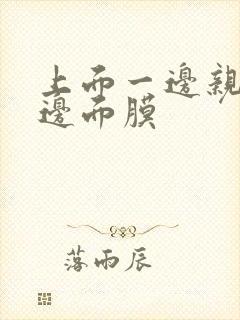 上而一邊親
邊而膜
落雨辰